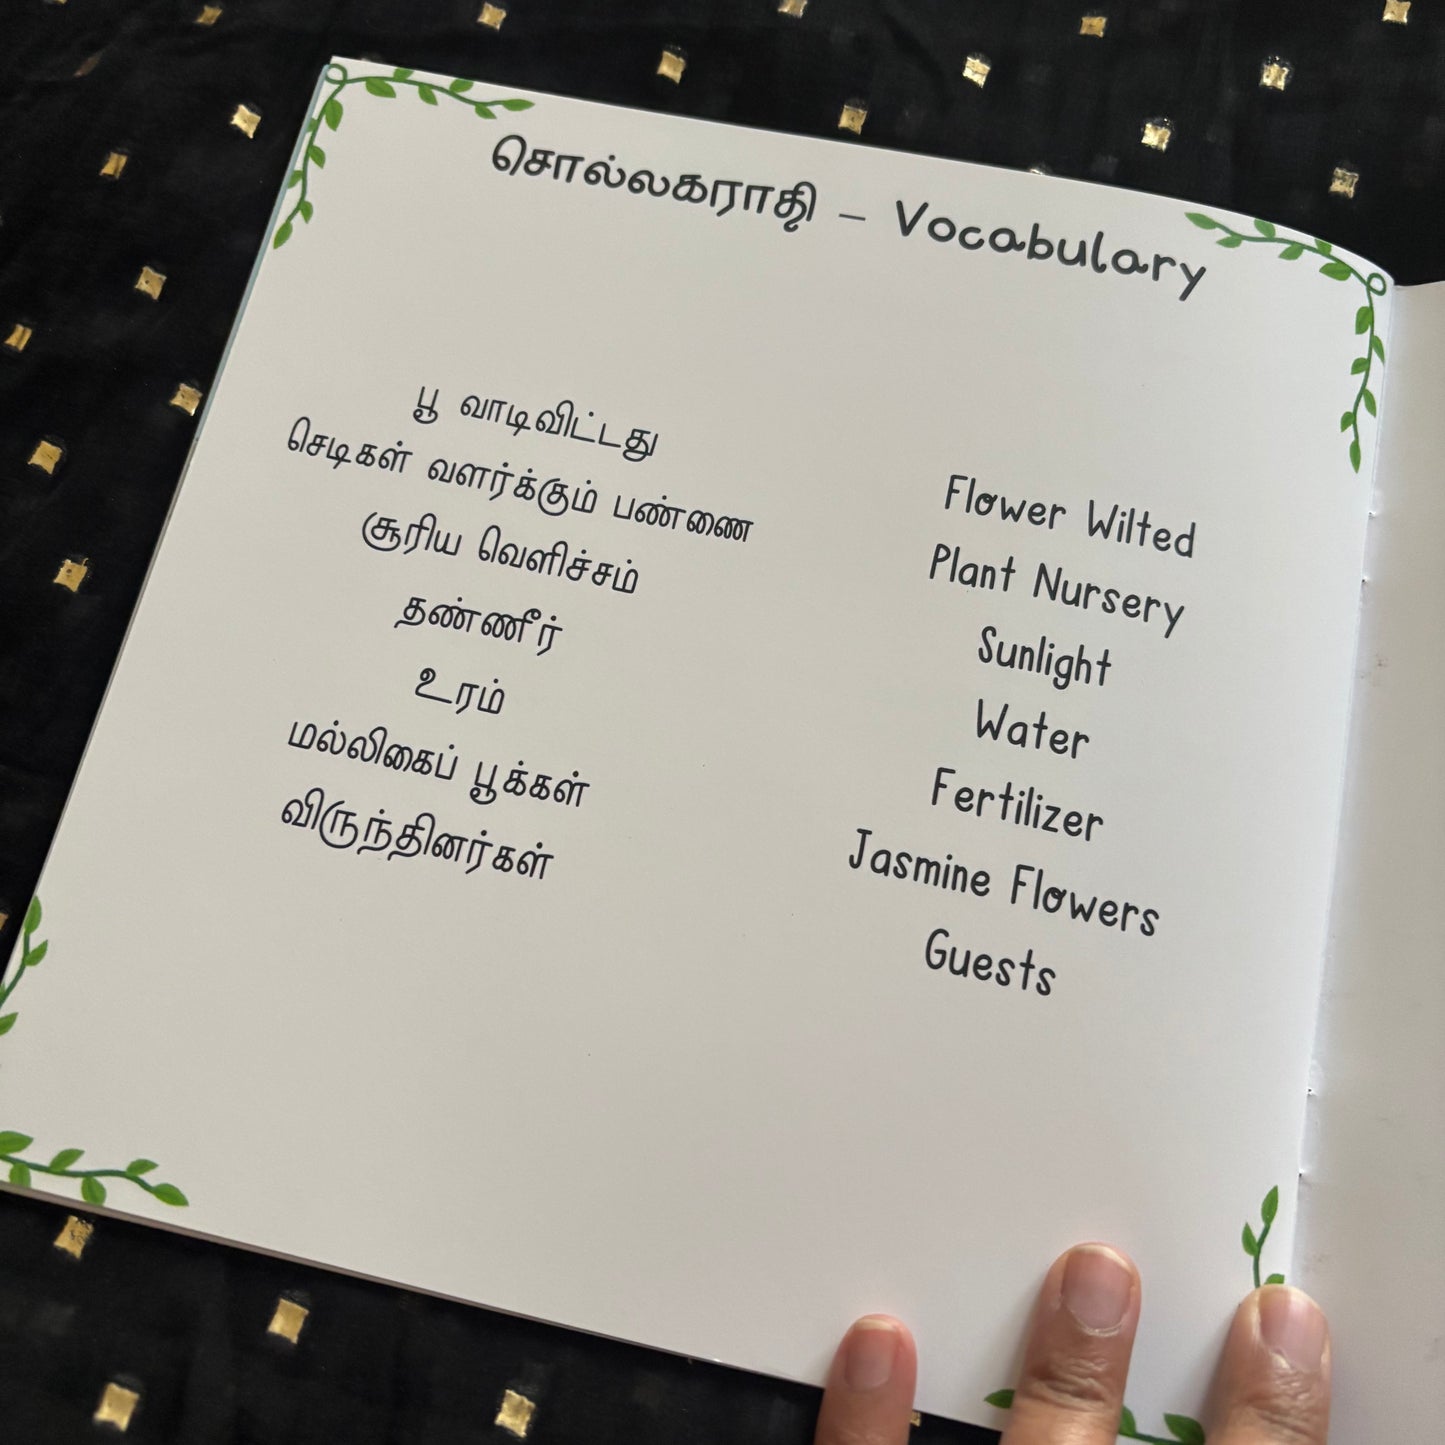 சொல்லகராதி – Vocabulary
பூ வாடிவிட்டது
செடிகள் வளர்க்கும் பண்ணை
சூரிய வெளிச்சம்
தண்ணீர்
உரம்
மல்லிகைப் பூக்கள்
விருந்தினர்கள்
Flower Wilted
Plant Nursery
Sunlight
Water
Fertilizer
Jasmine Flowers
Guests